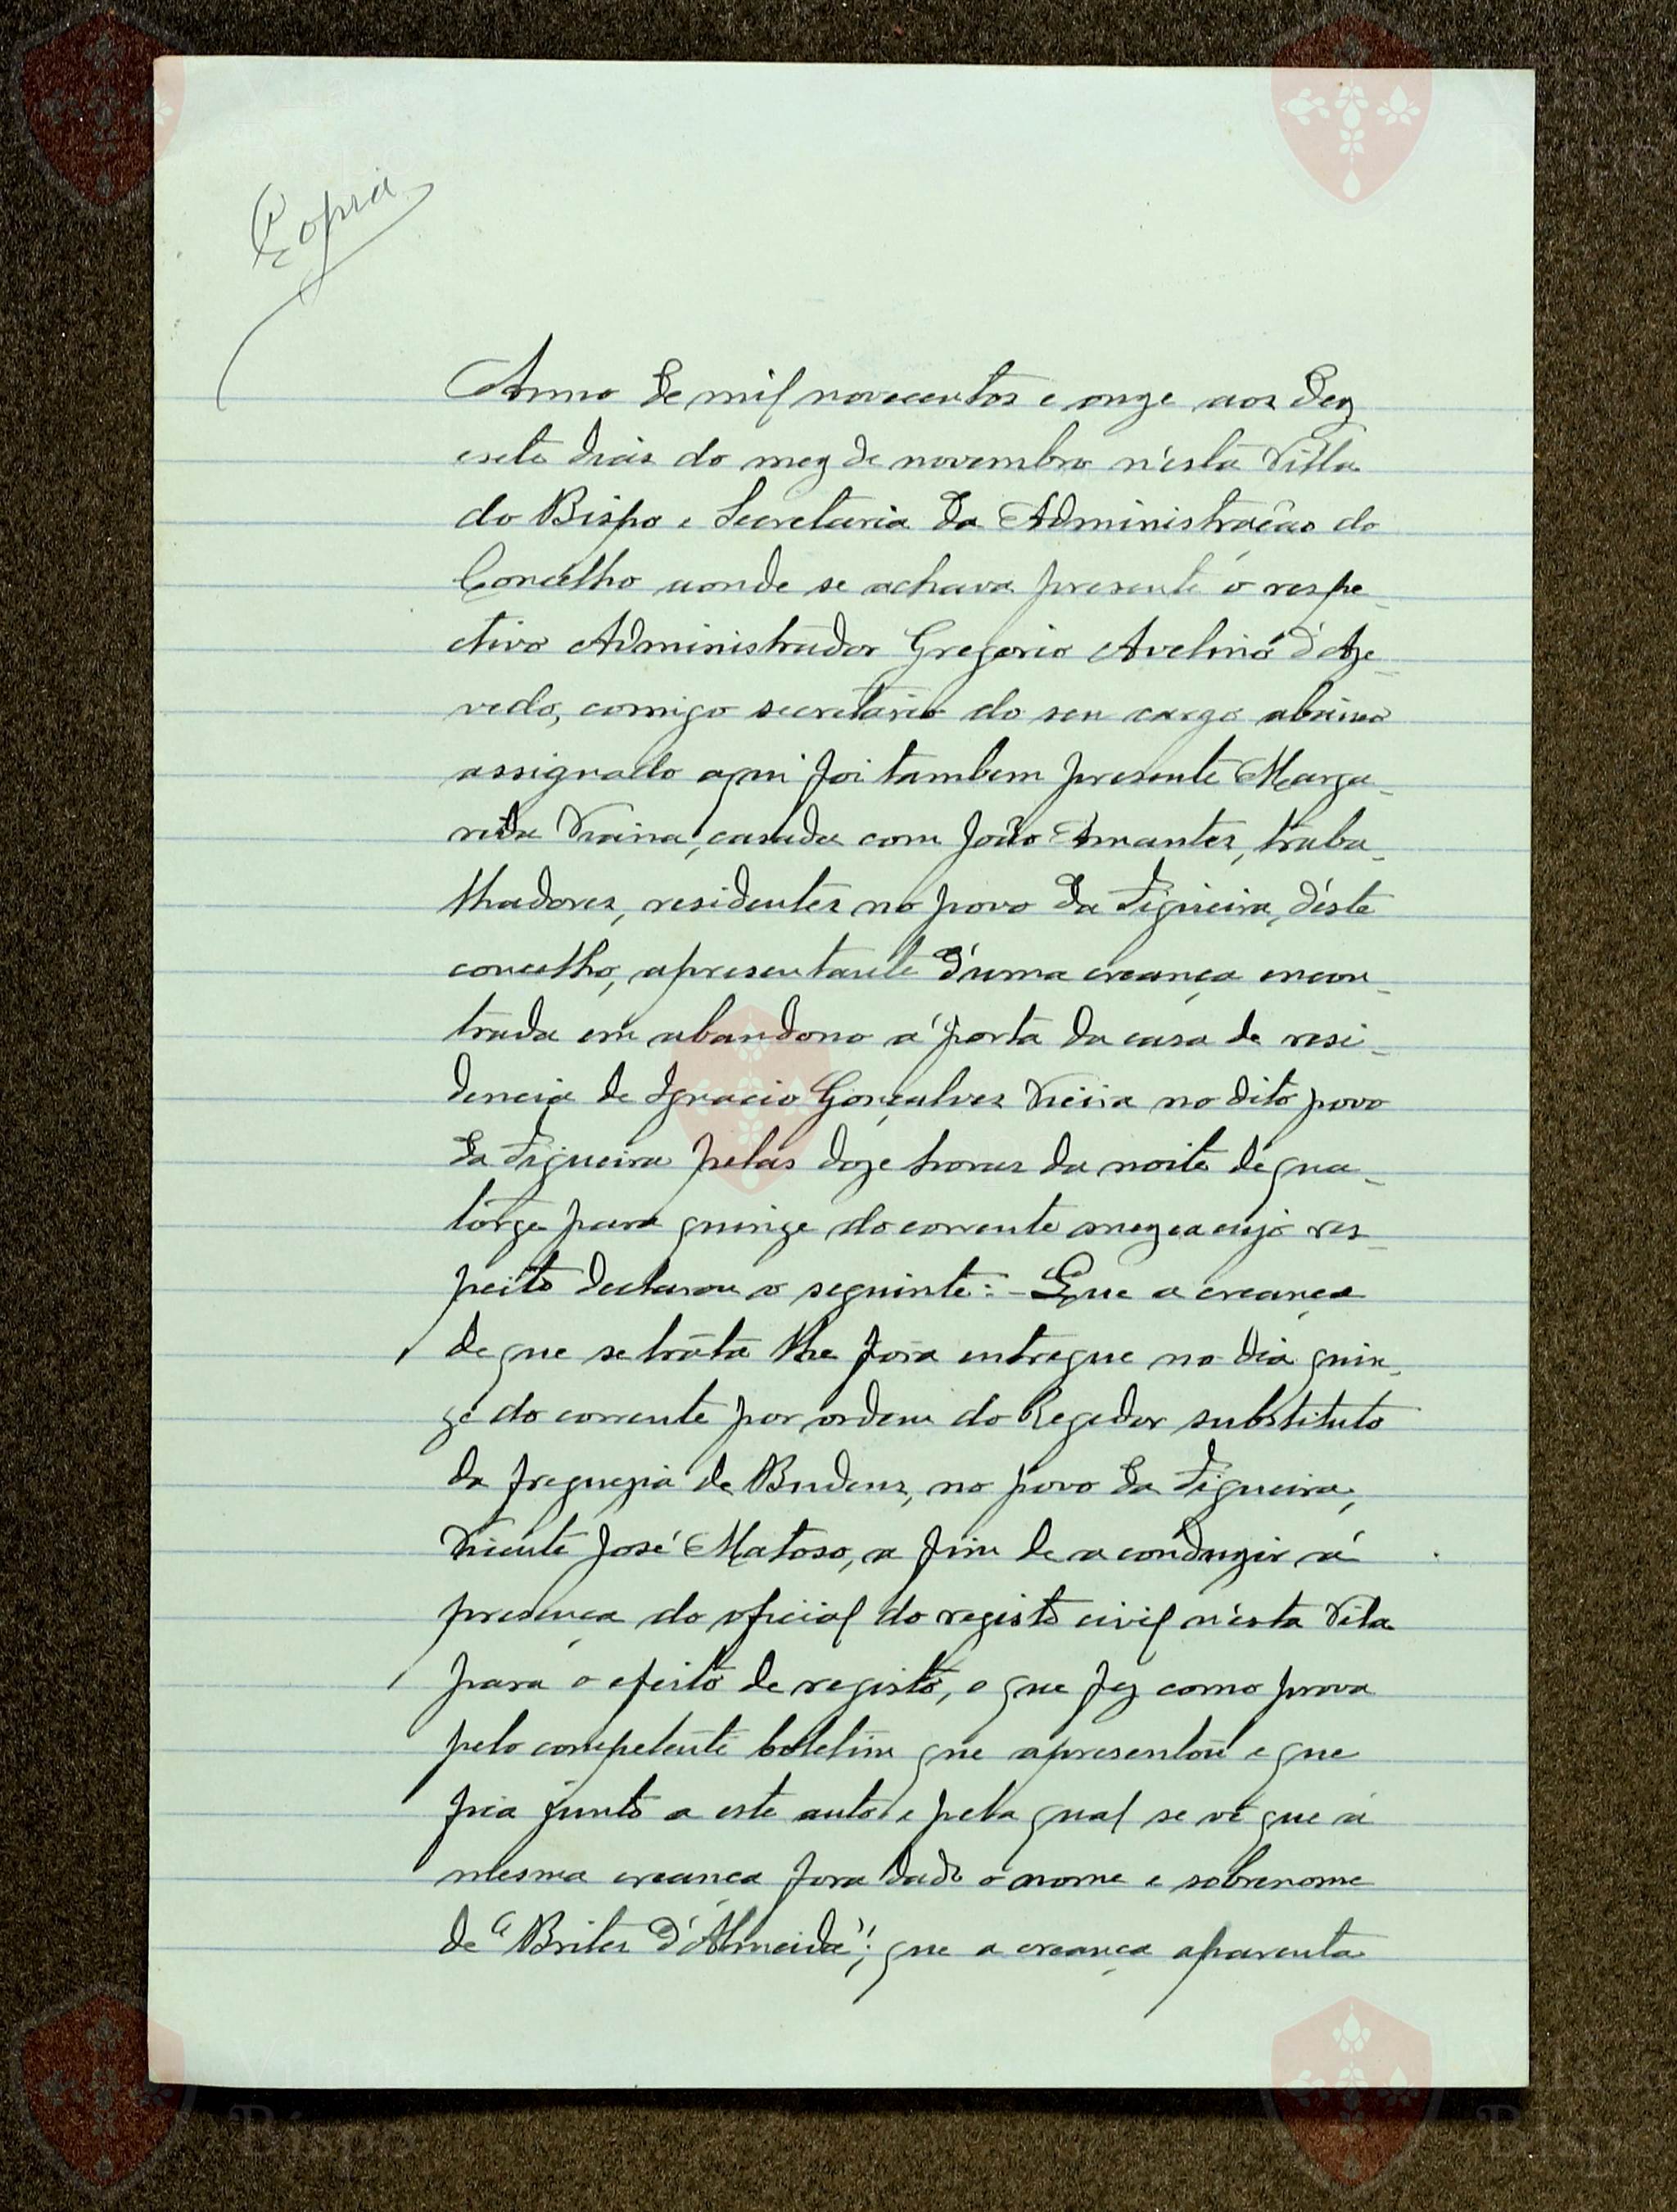 Copia
Anno de mil novecentos e onze aos dez
esete dias do mez de novembro n'esta Villa
do Bispo e Secretaria da Administracão do
Concelho aonde se achava presente o respe-
ctivo Administrador Gregorio Avelino d'Aze-
vedo, comigo secretario do seu cargo abaixo
assignado aqui foi tambem presente Marga-
rida casada com João Amantes, traba-
lhadores, residentes no povo da Figueira, déste
concelho, apresentante d'uma creança encon-
trada em abandono á porta da casa de resi-
dencia de Ignacio Gonçalves Vieira no dito povo
da Figueira pelas doze horas da noite de qua-
torze para quinze do corrente mez e a cujo res-
peito declarou o seguinte: - Que a creança
de que se trata lhe fora entregue no dia quin-
ze do corrente por ordem do Regedor substituto
da freguezia de Budens, no povo da Figueira,
Vicente José Matoso, a fim de a conduzir á
presença do oficial do registo civil n'esta Vila
para o efeito de registo, o que fez como prova
pelo competente boletim que apresentou e que
fica junto a este auto e pela qual se vê que á
mesma creança fora dado o nome e sobrenome
de "Brites D'Almeida"; que a creança aparenta
Vila do
Bispo